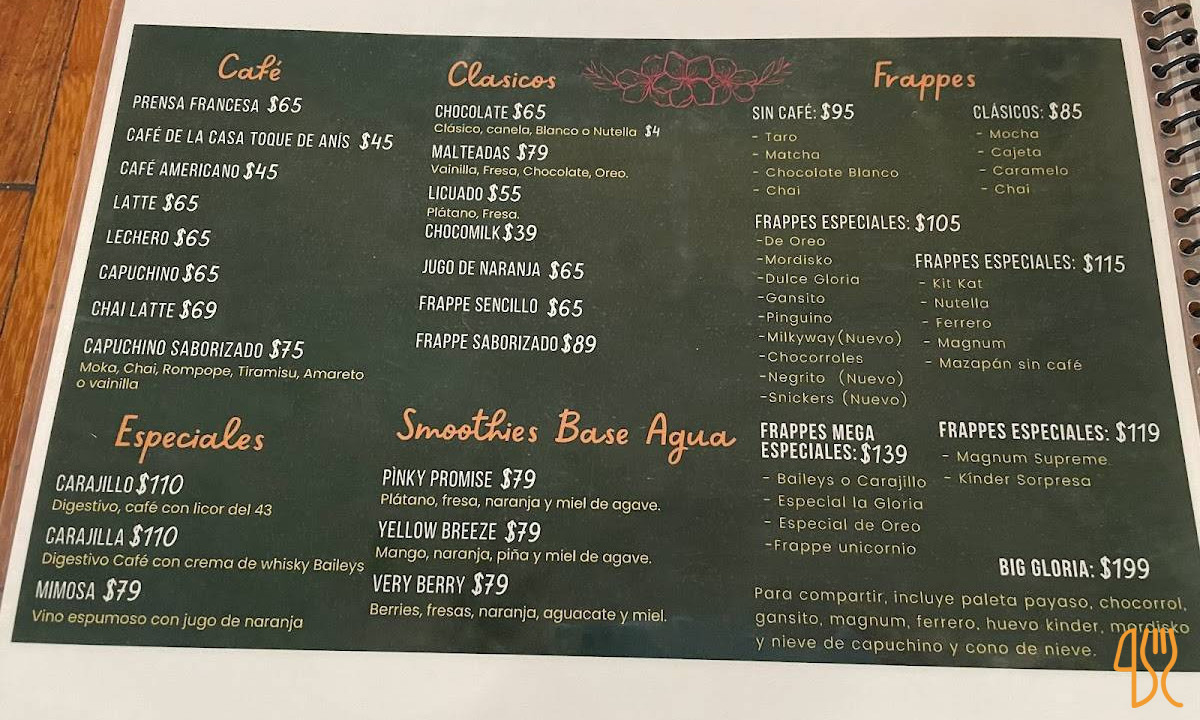 Café
PRENSA FRANCESA $65
CAFÉ DE LA CASA TOQUE DE ANÍS $45
CAFÉ AMERICANO $45
LATTE $65
LECHERO $65
CAPUCHINO $65
CHAI LATTE $69
CAPUCHINO SABORIZADO $75
Moka, Chai, Rompope, Tiramisu, Amareto
o vainilla
Especiales
CARAJILLO $110
Digestivo, café con licor del 43
CARAJILLA $110
Digestivo Café con crema de whisky Baileys
MIMOSA $79
Vino espumoso con jugo de naranja
Clasicos
CHOCOLATE $65
Clásico, canela, Blanco o Nutella $4
MALTEADAS $79
Vainilla, Fresa, Chocolate, Oreo.
LICUADO $55
Plátano, Fresa.
CHOCOMILK $39
JUGO DE NARANJA $65
FRAPPE SENCILLO $65
FRAPPE SABORIZADO $89
Smoothies Base Agua
PÌNKY PROMISE $79
Plátano, fresa, naranja y miel de agave.
YELLOW BREEZE $79
Mango, naranja, piña y miel de agave.
VERY BERRY $79
Berries, fresas, naranja, aguacate y miel.
Frappes
SIN CAFÉ: $95
- Taro
- Matcha
- Chocolate Blanco
- Chai
CLÁSICOS: $85
- Mocha
- Cajeta
- Caramelo
- Chai
FRAPPES ESPECIALES: $105
-De Oreo
-Mordisko
-Dulce Gloria
-Gansito
-Pinguino
-Milkyway(Nuevo)
-Chocorroles
-Negrito (Nuevo)
-Snickers (Nuevo)
FRAPPES ESPECIALES: $115
- Kit Kat
- Nutella
- Ferrero
- Magnum
- Mazapán sin café
FRAPPES MEGA
ESPECIALES: $139
- Baileys o Carajillo
- Especial la Gloria
- Especial de Oreo
-Frappe unicornio
FRAPPES ESPECIALES: $119
- Magnum Supreme
- Kínder Sorpresa
BIG GLORIA: $199
Para compartir, incluye paleta payaso, chocorrol,
gansito, magnum, ferrero, huevo kinder, mordisko
y nieve de capuchino y cono de nieve.